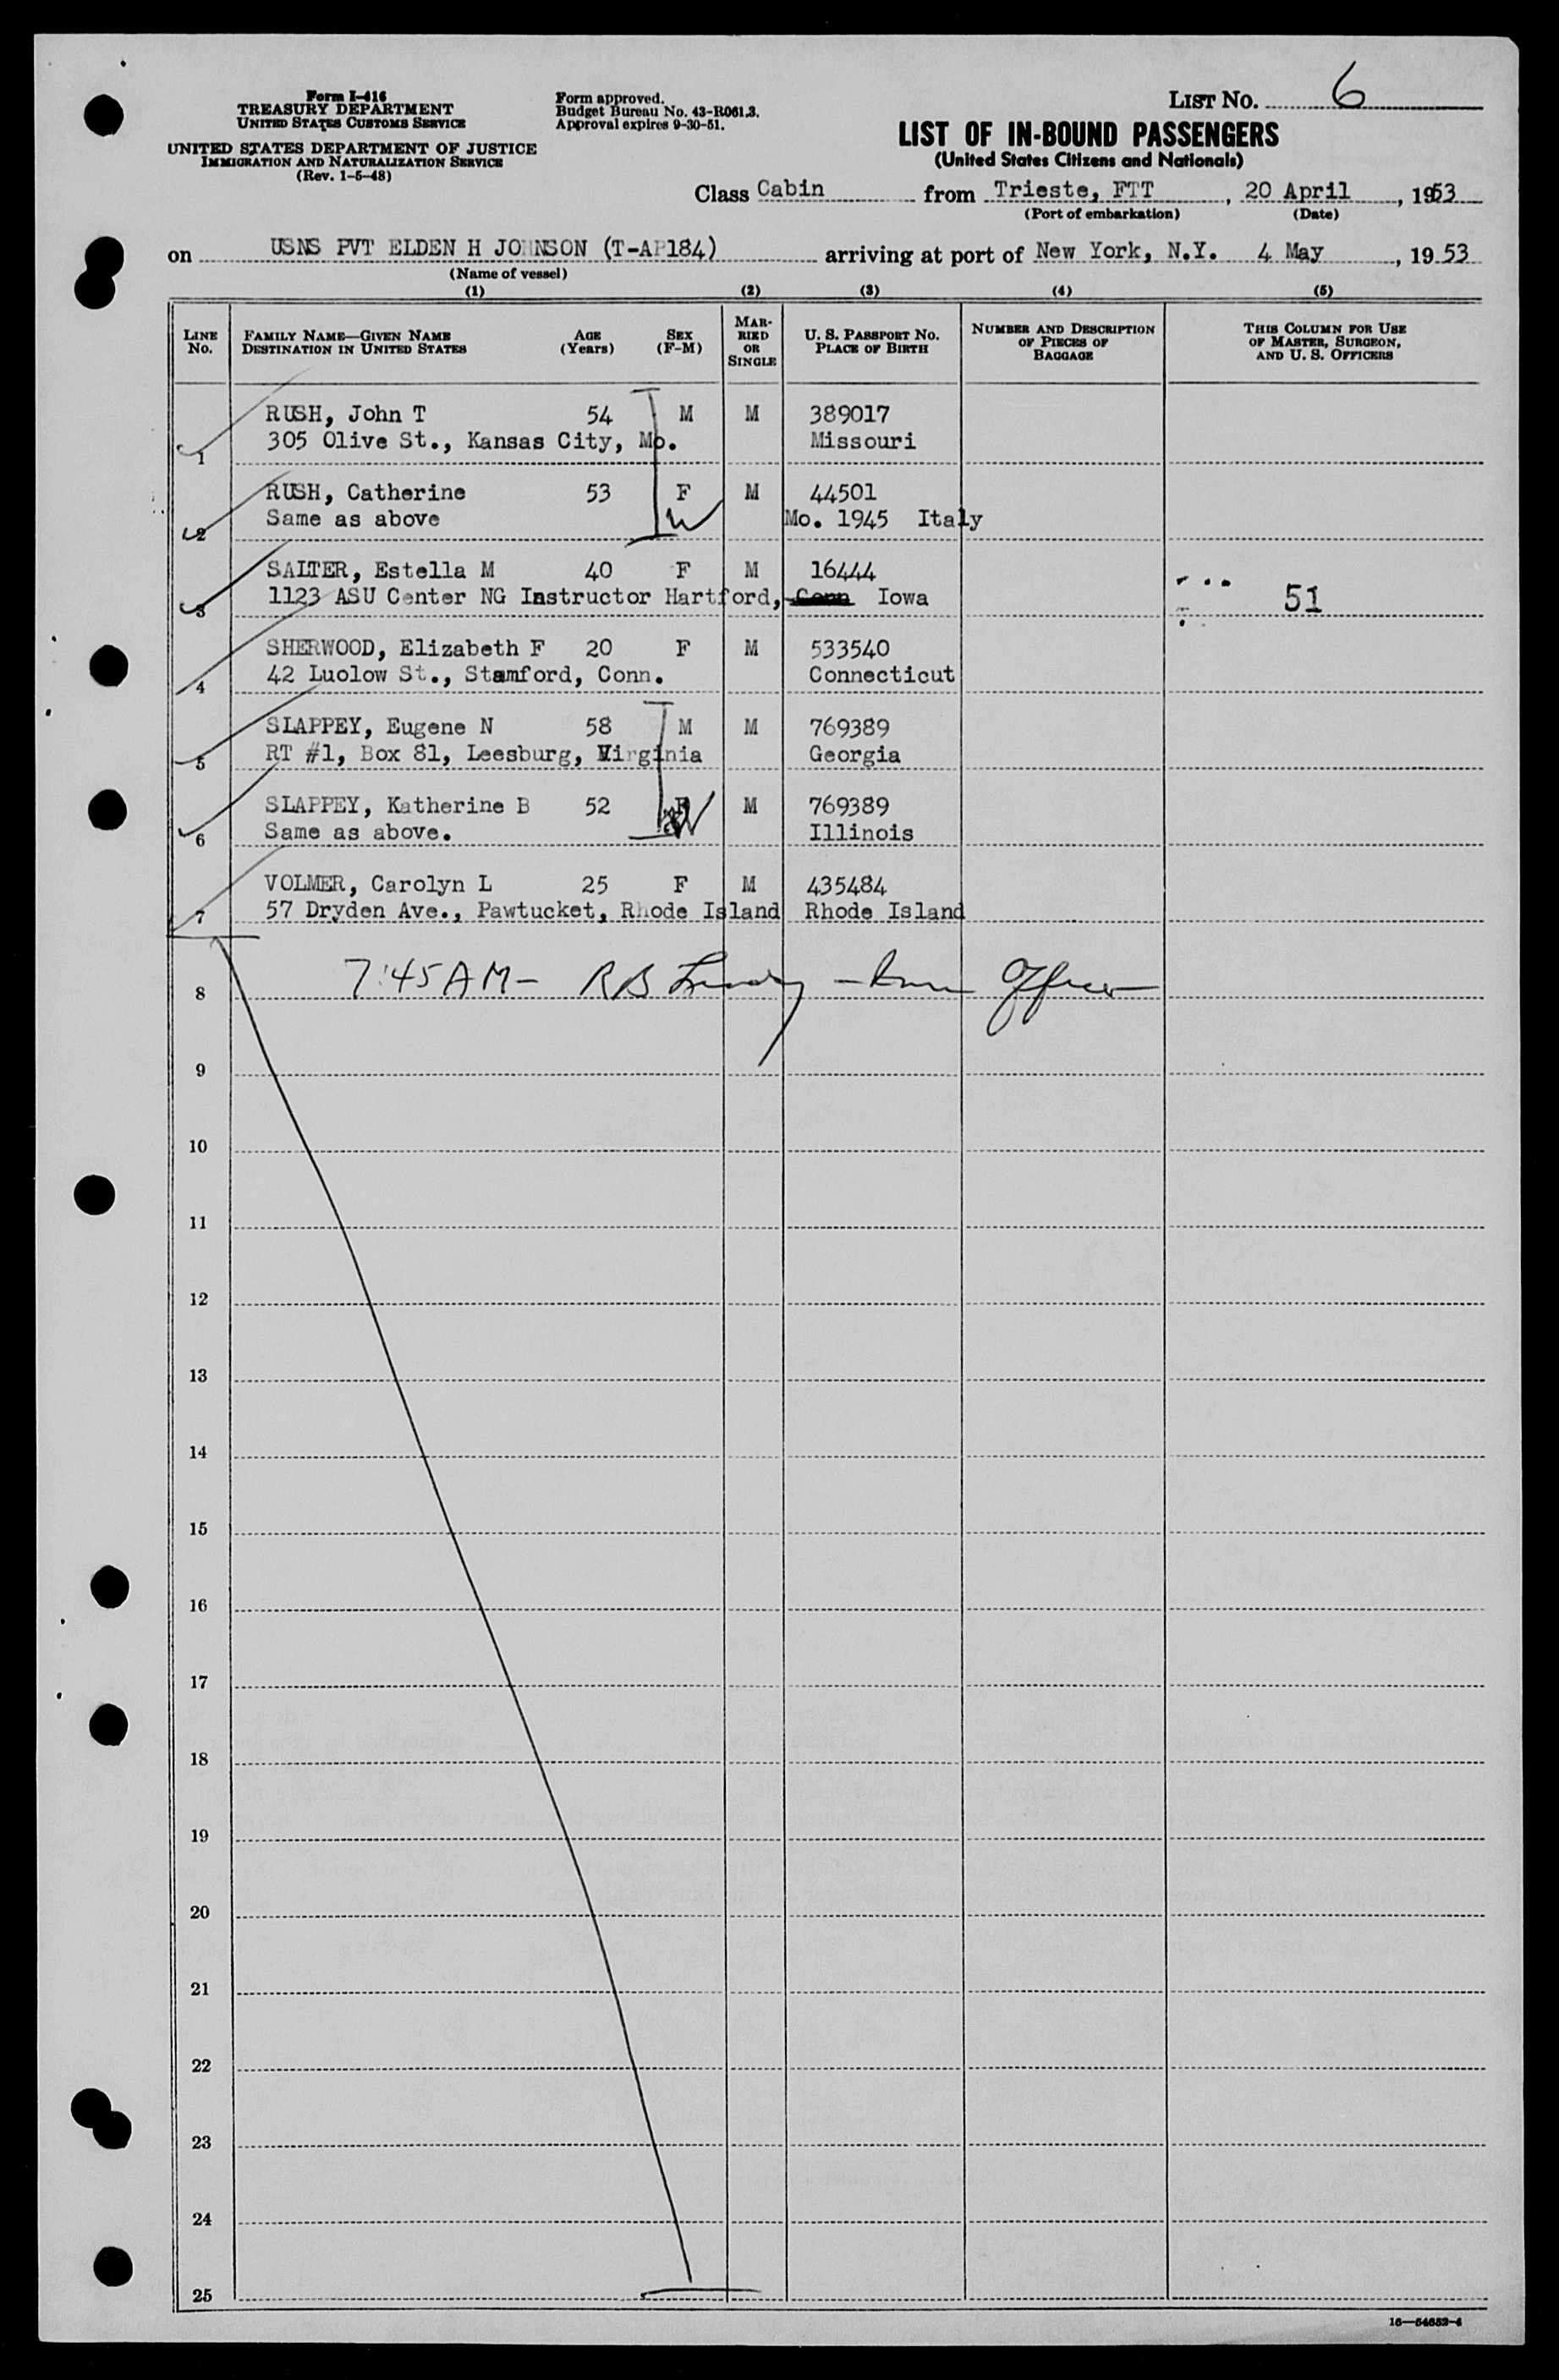 Form I-416
TREASURY DEPARTMENT
UNITED STATES CUSTOMS SERVICE
UNITED STATES DEPARTMENT OF JUSTICE
IMMIGRATION AND NATURALIZATION SERVICE
(Rev. 1-5-48)
Form approved.
Budget Bureau No. 43-R061.3.
Approval expires 9-30-51.
LIST NO. 6
LIST OF IN-BOUND PASSENGERS
(United States Citizens and Nationals)
Class Cabin from Trieste, FTT, 20 April, 1953
(Port of embarkation) (Date)
on USNS PVT ELDEN H JOHNSON (T-AP184) arriving at port of New York, N.Y. 4 May, 1953
(Name of vessel)
(1) (2) (3) (4) (5)
LINE NO. FAMILY NAME—GIVEN NAME DESTINATION IN UNITED STATES AGE (Years) SEX (F-M) MARRIED OR SINGLE U. S. PASSPORT NO. PLACE OF BIRTH NUMBER AND DESCRIPTION OF PIECES OF BAGGAGE THIS COLUMN FOR USE OF MASTER, SURGEON, AND U. S. OFFICERS
RUSH, John T 54 M M 389017
1 305 Olive St., Kansas City, Mo. Missouri
RUSH, Catherine 53 F M 44501
2 Same as above W Mo. 1945 Italy
SALTER, Estella M 40 F M 16444
3 1123 ASU Center NG Instructor Hartford, Conn Iowa 51
SHERWOOD, Elizabeth F 20 F M 533540
4 42 Luolow St., Stamford, Conn. Connecticut
SLAPPEY, Eugene N 58 M M 769389
5 RT #1, Box 81, Leesburg, Virginia Georgia
SLAPPEY, Katherine B 52 F M 769389
6 Same as above. W Illinois
VOLMER, Carolyn L 25 F M 435484
7 57 Dryden Ave., Pawtucket, Rhode Island Rhode Island
8 7:45 AM - R B - Officer
9
10
11
12
13
14
15
16
17
18
19
20
21
22
23
24
25
16—54652-4